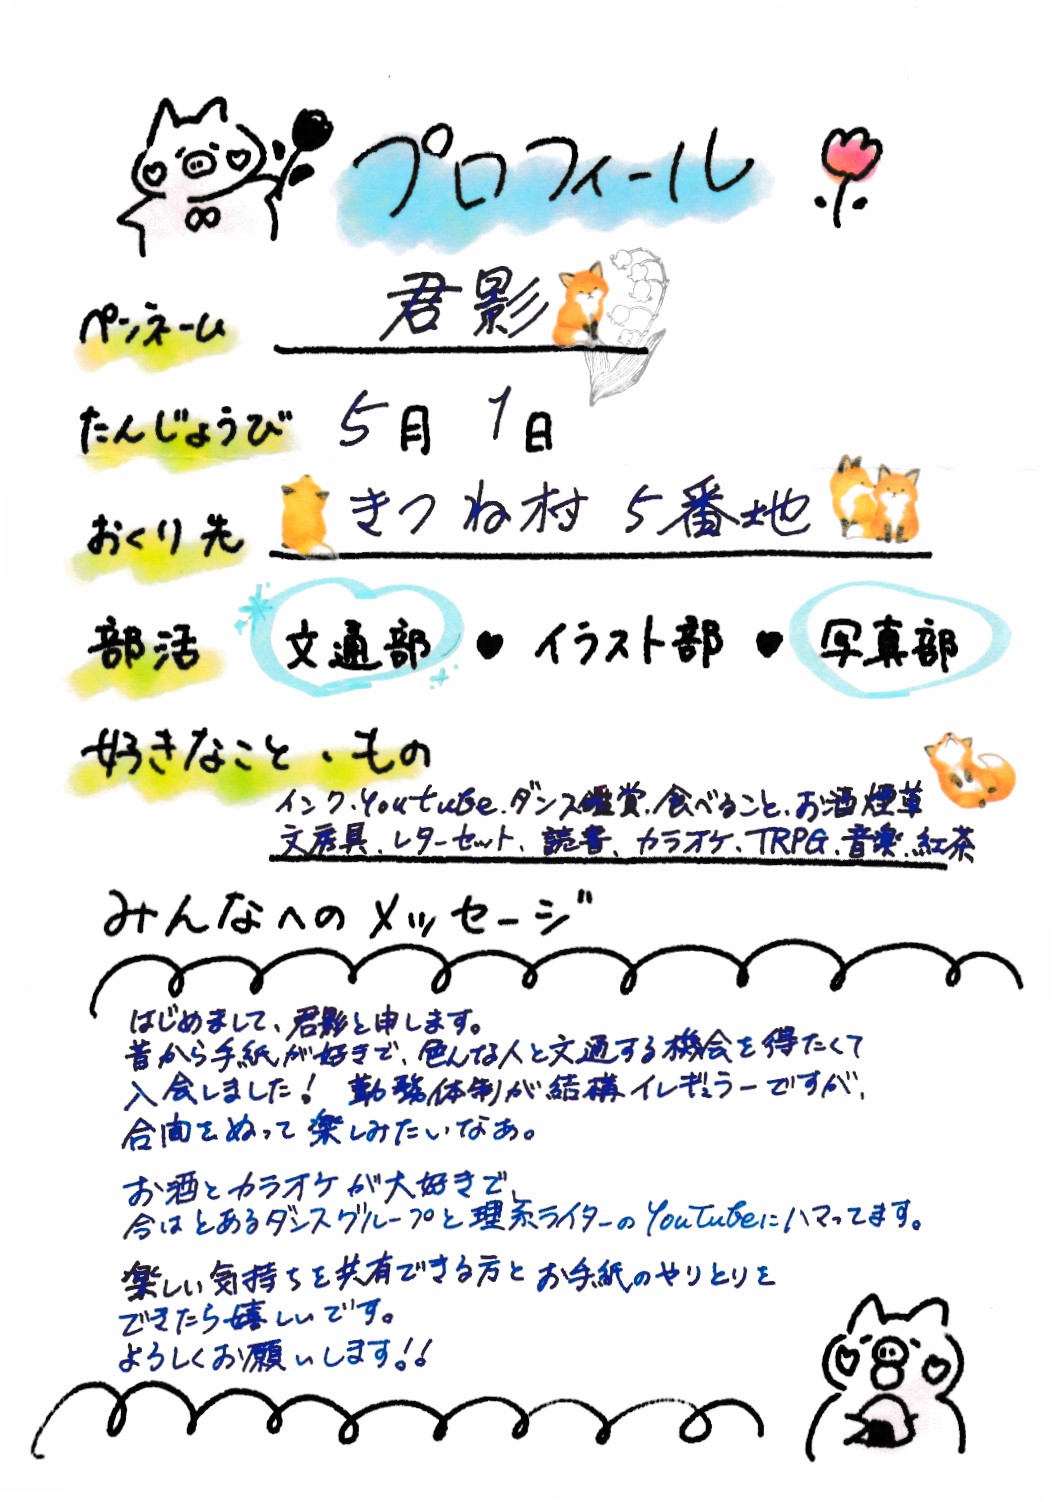 プロフィール
ペンネーム 君影
たんじょうび 5月 1日
おくり先 きつね村 5番地
部活 文通部 ♥ イラスト部 ♥ 写真部
好きなこと・もの
インク、YouTube、ダンス鑑賞、食べること、お酒煙草
文房具、レターセット、読書、カラオケ、TRPG、音楽、紅茶
みんなへのメッセージ
はじめまして、君影と申します。
昔から手紙が好きで、色んな人と文通する機会を得たくて
入会しました! 勤務体制が結構イレギュラーですが、
合間をぬって楽しみたいなあ。
お酒とカラオケが大好きで、
今はとあるダンスグループと理系ライターのYouTubeにハマってます。
楽しい気持ちを共有できる方とお手紙のやりとりを
できたら嬉しいです。
よろしくお願いします!!